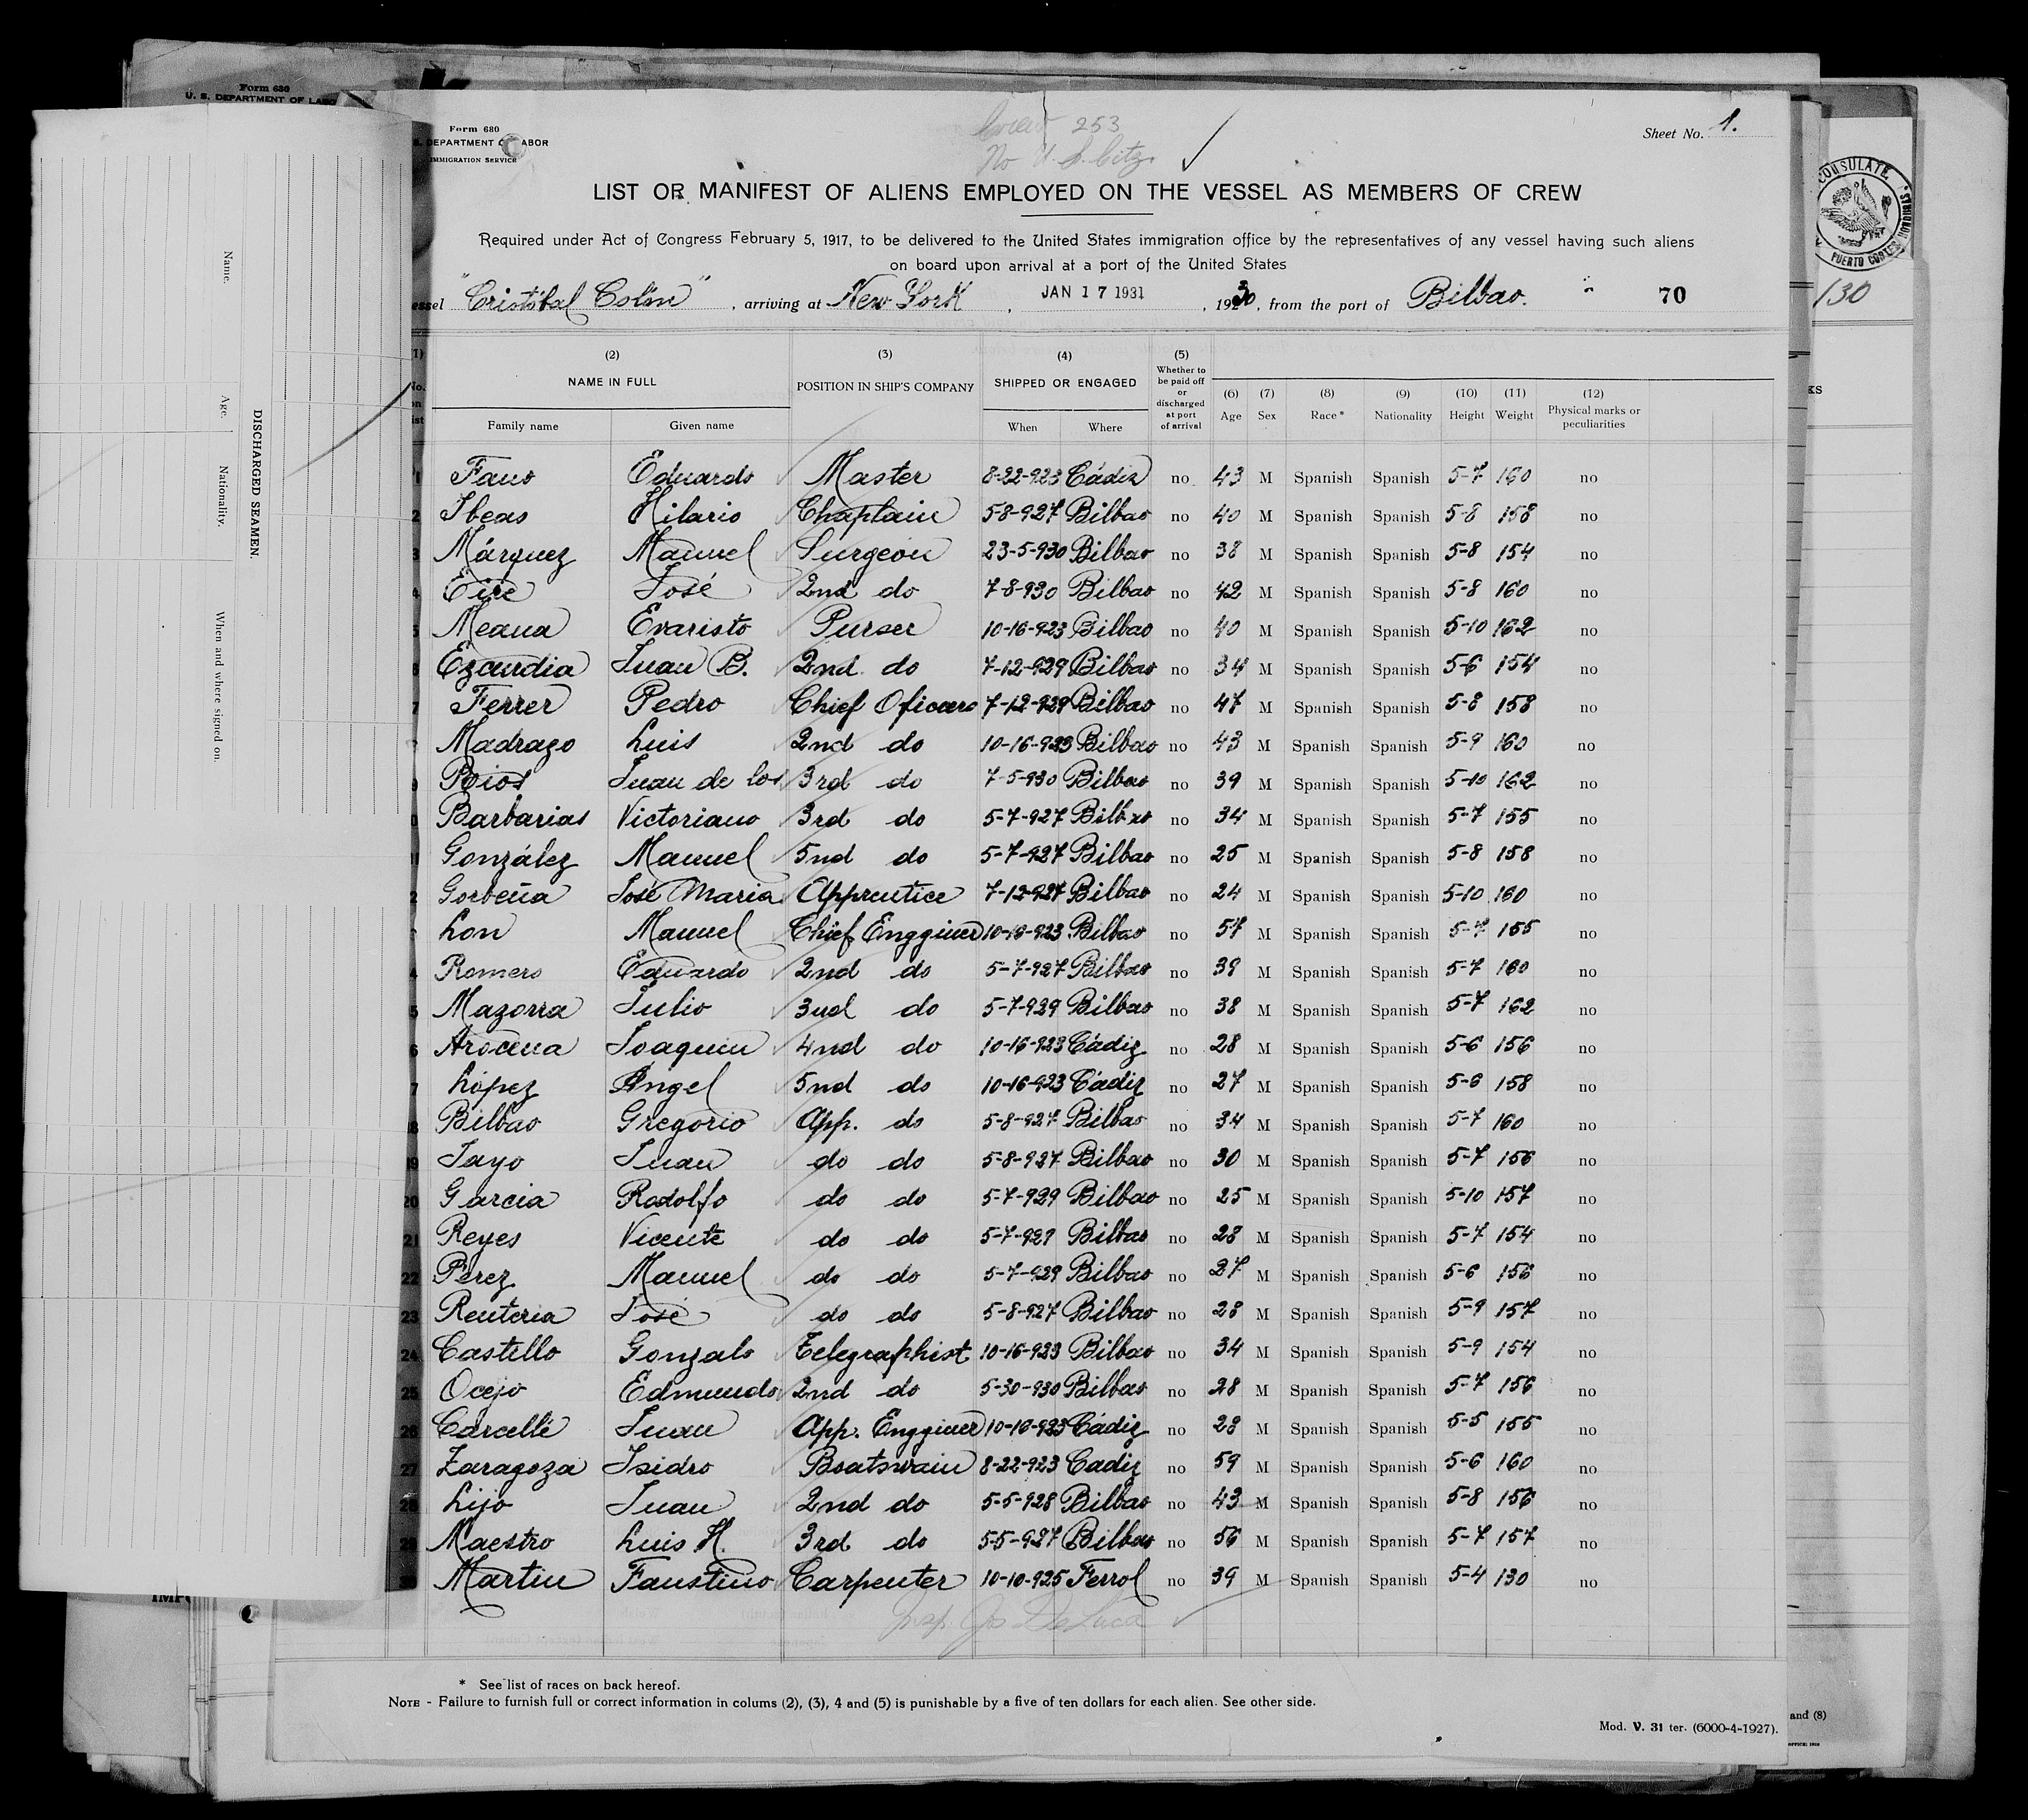 Form 630
U. S. DEPARTMENT OF LABO
Form 680
S. DEPARTMENT OF LABOR
IMMIGRATION SERVICE
Crew 253
No U.S. Citz.
Sheet No. 1.
LIST OR MANIFEST OF ALIENS EMPLOYED ON THE VESSEL AS MEMBERS OF CREW
Required under Act of Congress February 5, 1917, to be delivered to the United States immigration office by the representatives of any vessel having such aliens
on board upon arrival at a port of the United States
essel "Cristóbal Colón", arriving at New York, JAN 17 1931, 1930, from the port of Bilbao. 70
(1) (2) (3) (4) (5)
No. on list NAME IN FULL POSITION IN SHIP'S COMPANY SHIPPED OR ENGAGED Whether to be paid off or discharged at port of arrival (6) Age (7) Sex (8) Race* (9) Nationality (10) Height (11) Weight (12) Physical marks or peculiarities
Family name Given name When Where
1 Fano Eduardo Master 8-22-923 Cádiz no 43 M Spanish Spanish 5-7 160 no
2 Ibeas Hilario Chaplain 5-8-927 Bilbao no 40 M Spanish Spanish 5-8 158 no
3 Márquez Manuel Surgeon 23-5-930 Bilbao no 38 M Spanish Spanish 5-8 154 no
4 Eire José 2nd do 7-8-930 Bilbao no 42 M Spanish Spanish 5-8 160 no
5 Meana Evaristo Purser 10-16-923 Bilbao no 40 M Spanish Spanish 5-10 162 no
6 Ezcurdia Juan B. 2nd. do 7-12-929 Bilbao no 34 M Spanish Spanish 5-6 154 no
7 Ferrer Pedro Chief Oficcers 7-12-929 Bilbao no 47 M Spanish Spanish 5-8 158 no
Madrazo Luis 2nd do 10-16-923 Bilbao no 43 M Spanish Spanish 5-9 160 no
9 Rios Juan de los 3rd do 7-5-930 Bilbao no 39 M Spanish Spanish 5-10 162 no
0 Barbarias Victoriano 3rd do 5-7-927 Bilbao no 34 M Spanish Spanish 5-7 155 no
11 González Manuel 5nd do 5-7-927 Bilbao no 25 M Spanish Spanish 5-8 158 no
2 Gorbeña José Maria Apprentice 7-12-927 Bilbao no 24 M Spanish Spanish 5-10 160 no
Lon Manuel Chief Engginer 10-16-923 Bilbao no 57 M Spanish Spanish 5-7 155 no
4 Romero Eduardo 2nd do 5-7-927 Bilbao no 39 M Spanish Spanish 5-7 160 no
5 Mazorra Julio 3nd do 5-7-929 Bilbao no 38 M Spanish Spanish 5-7 162 no
6 Arocena Joaquin 4nd do 10-16-923 Cádiz no 28 M Spanish Spanish 5-6 156 no
7 López Angel 5nd do 10-16-923 Cádiz no 27 M Spanish Spanish 5-6 158 no
18 Bilbao Gregorio App. do 5-8-927 Bilbao no 34 M Spanish Spanish 5-7 160 no
19 Jayo Juan do do 5-8-927 Bilbao no 30 M Spanish Spanish 5-7 156 no
20 Garcia Rodolfo do do 5-7-929 Bilbao no 25 M Spanish Spanish 5-10 157 no
21 Reyes Vicente do do 5-7-929 Bilbao no 28 M Spanish Spanish 5-7 154 no
22 Perez Manuel do do 5-7-929 Bilbao no 27 M Spanish Spanish 5-6 156 no
23 Renteria José do do 5-8-927 Bilbao no 28 M Spanish Spanish 5-9 157 no
24 Castello Gonzalo Telegraphist 10-16-923 Bilbao no 34 M Spanish Spanish 5-9 154 no
25 Ocejo Edmundo 2nd do 5-30-930 Bilbao no 28 M Spanish Spanish 5-7 156 no
26 Carcellé Juan App. Engginer 10-16-923 Cádiz no 28 M Spanish Spanish 5-5 155 no
27 Zaragoza Isidro Boatswain 8-22-923 Cadiz no 59 M Spanish Spanish 5-6 160 no
28 Lijo Juan 2nd do 5-5-928 Bilbao no 43 M Spanish Spanish 5-8 156 no
29 Maestro Luis H. 3rd do 5-5-927 Bilbao no 56 M Spanish Spanish 5-7 157 no
Martin Faustino Carpenter 10-10-925 Ferrol no 39 M Spanish Spanish 5-4 130 no
Insp. Jos DeLuca
* See list of races on back hereof.
NOTE - Failure to furnish full or correct information in colums (2), (3), 4 and (5) is punishable by a five of ten dollars for each alien. See other side.
Mod. V. 31 ter. (6000-4-1927).
DISCHARGED SEAMEN.
Name. Age. Nationality. When and where signed on.
CONSULATE
PUERTO CORTES, HONDURAS
130
KS
and (8)